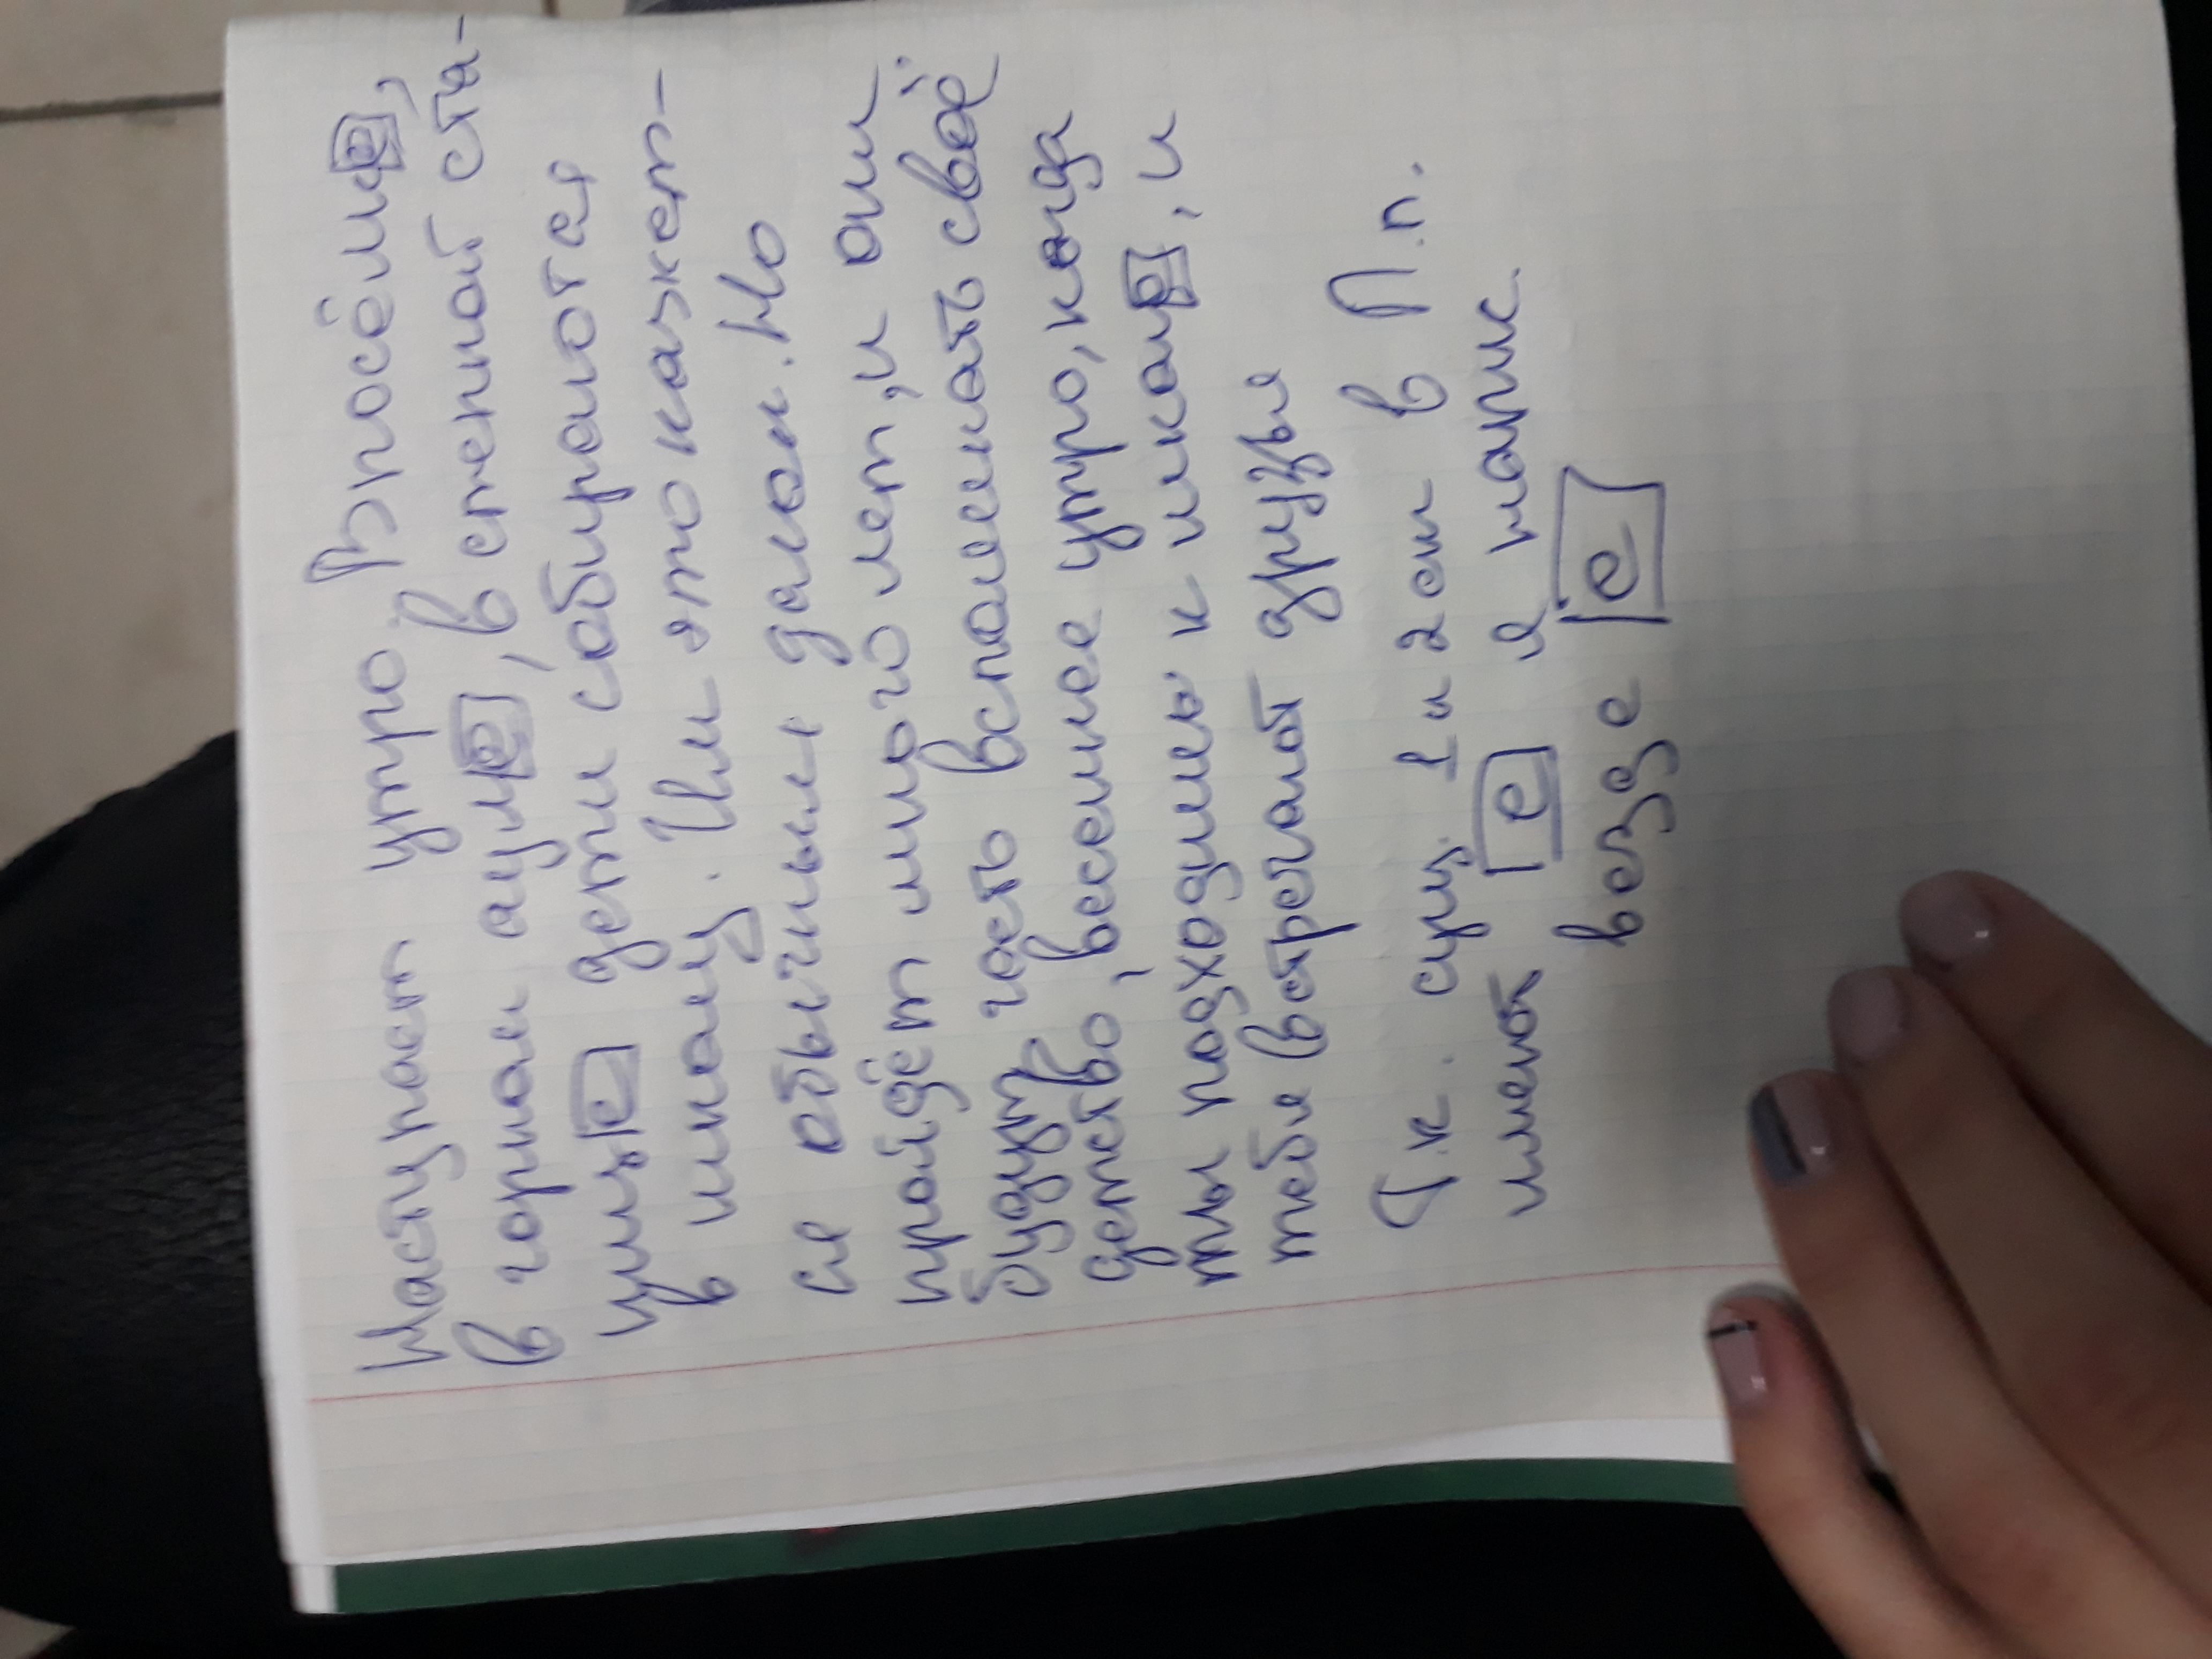 Наступает утро. В посёлке,
в горном ауле, в степной ста-
нице дети собираются
в школу. Им это кажет-
ся обычным делом. Но
пройдёт много лет, и они
будут часть вспоминать своё
детство, весеннее утро, когда
ты подходишь к школе, и
тебя встречают друзья
Т.к. сущ. 1 и 2 скл в П.п.
имеют е я напис.
везде е